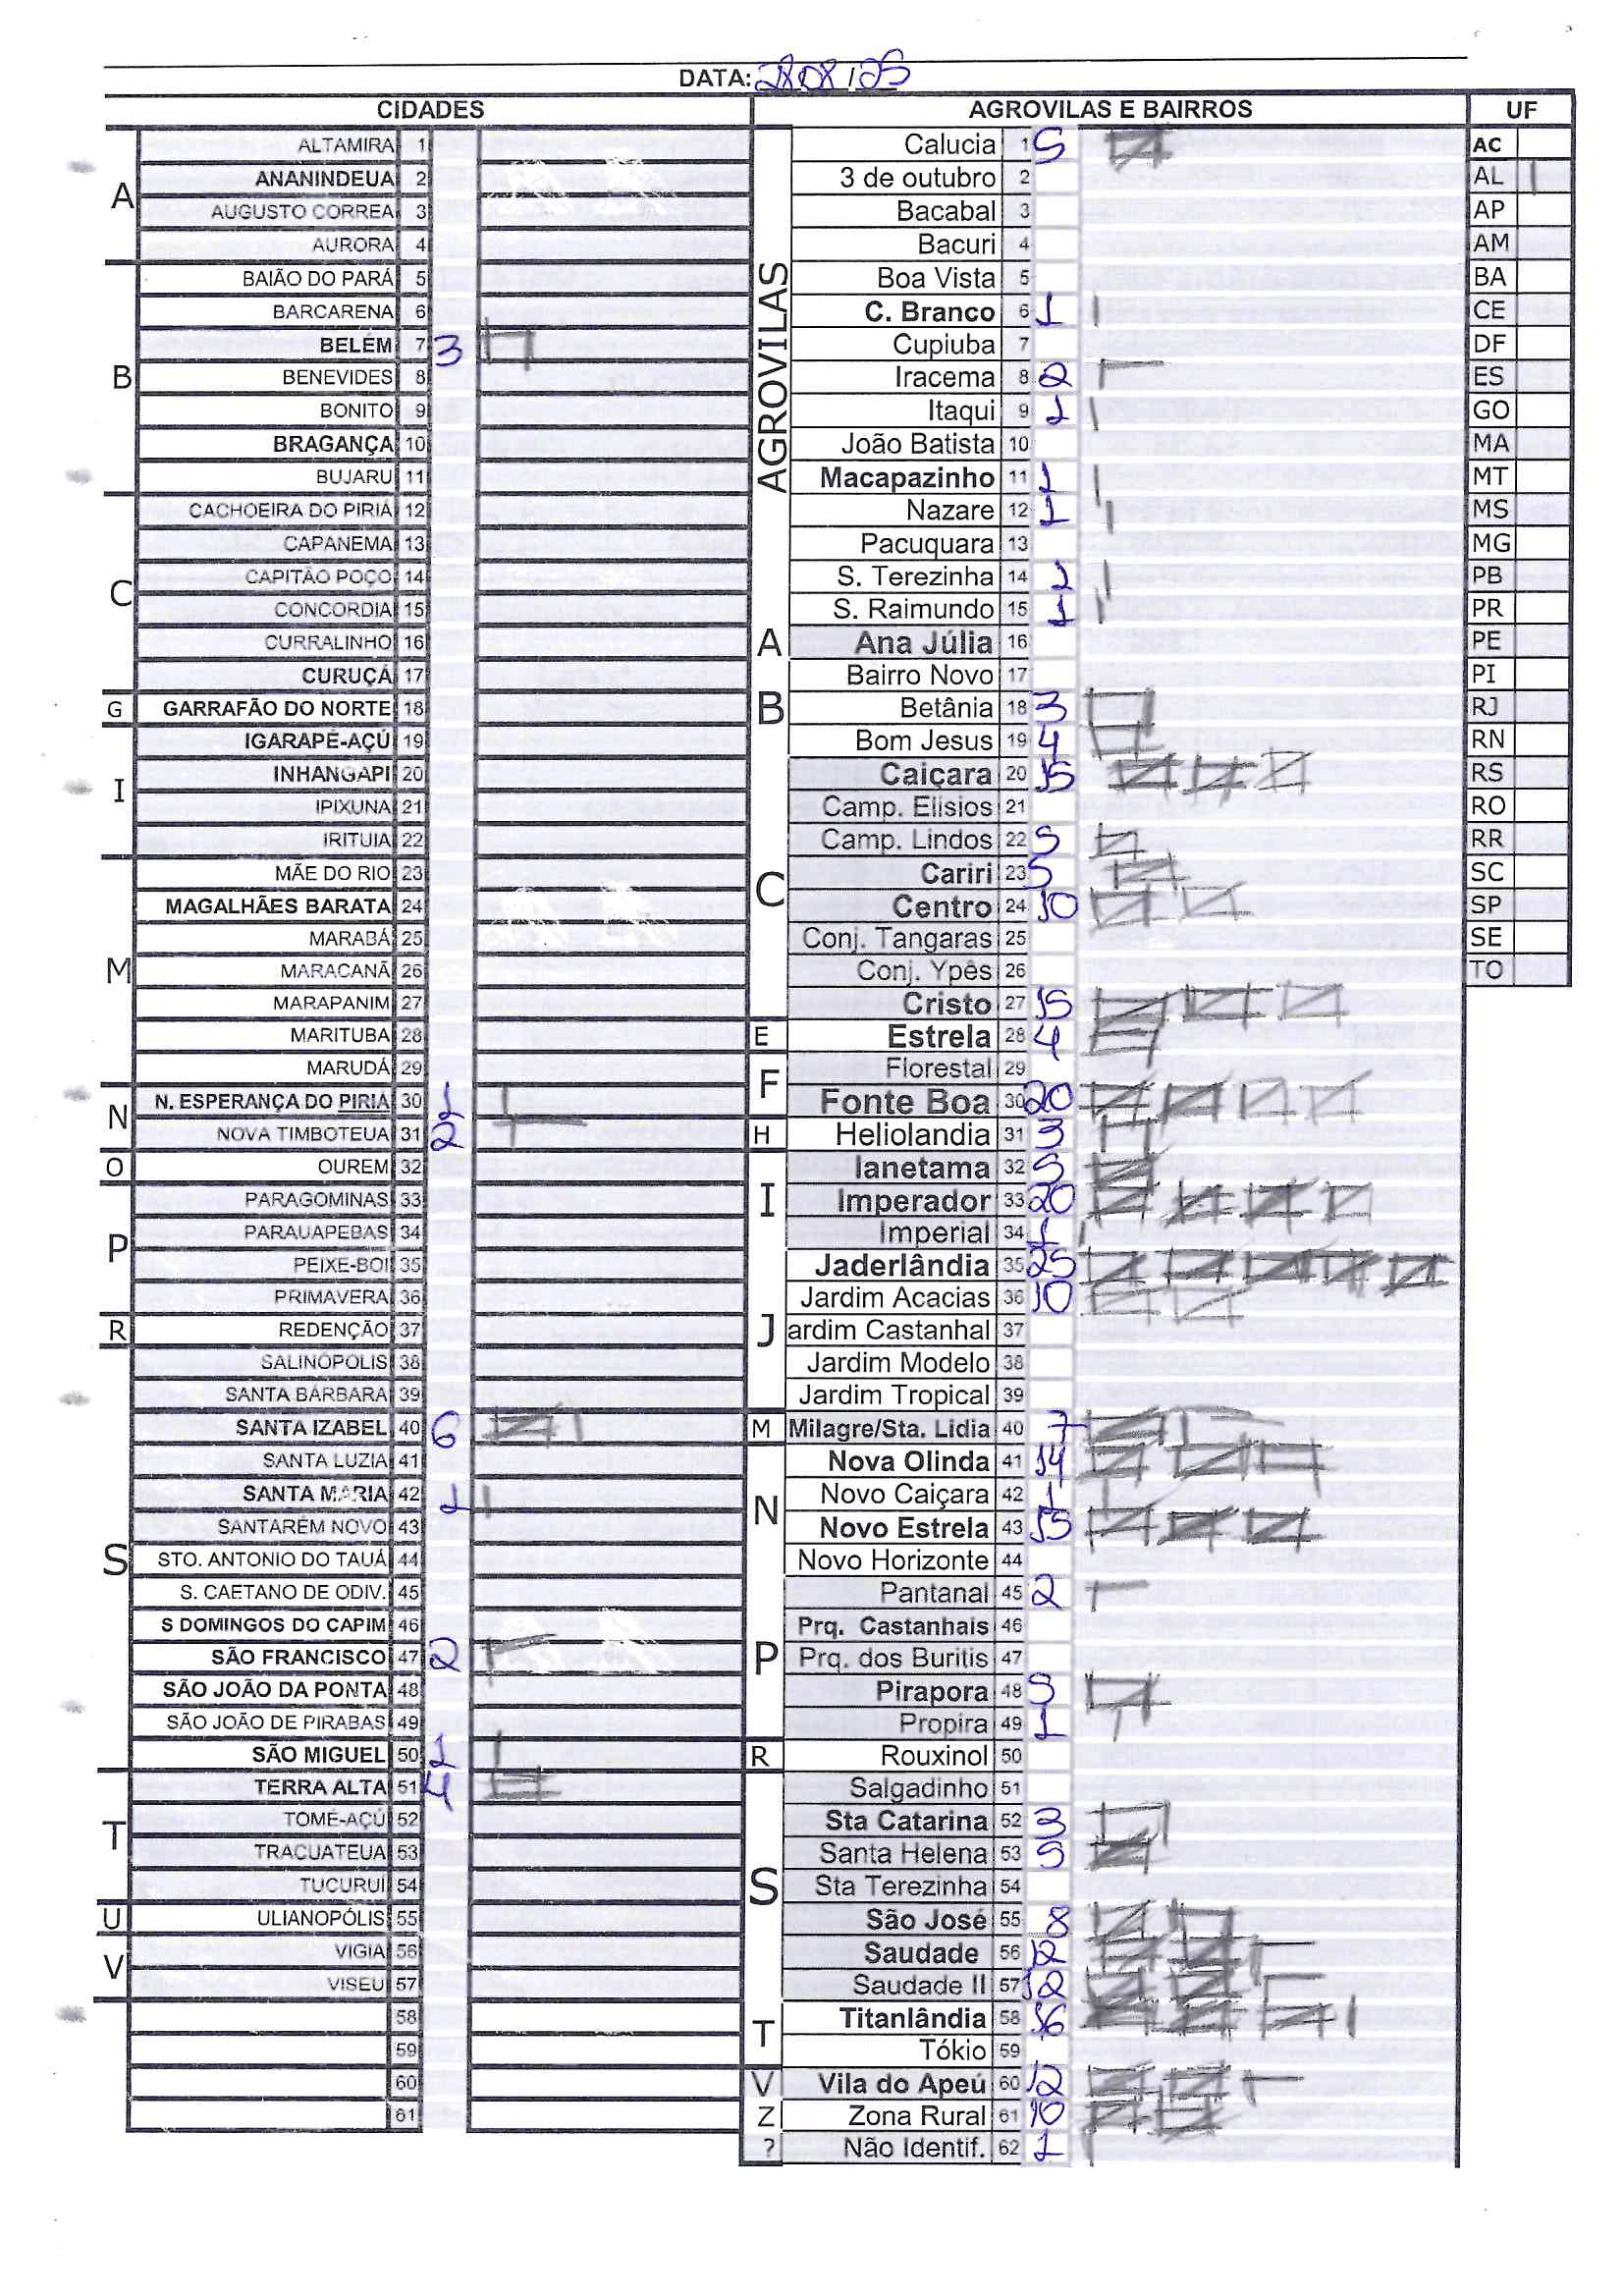 DATA: 28/08/25
CIDADES AGROVILAS E BAIRROS UF
A
ALTAMIRA 1
ANANINDEUA 2
AUGUSTO CORREA 3
AURORA 4
B
BAIÃO DO PARÁ 5
BARCARENA 6
BELÉM 7 3
BENEVIDES 8
BONITO 9
BRAGANÇA 10
BUJARU 11
C
CACHOEIRA DO PIRIÁ 12
CAPANEMA 13
CAPITÃO POÇO 14
CONCORDIA 15
CURRALINHO 16
CURUÇÁ 17
G
GARRAFÃO DO NORTE 18
I
IGARAPÉ-AÇÚ 19
INHANGAPI 20
IPIXUNA 21
IRITUIA 22
M
MÃE DO RIO 23
MAGALHÃES BARATA 24
MARABÁ 25
MARACANÃ 26
MARAPANIM 27
MARITUBA 28
MARUDÁ 29
N
N. ESPERANÇA DO PIRIA 30 1
NOVA TIMBOTEUA 31 2
O
OUREM 32
P
PARAGOMINAS 33
PARAUAPEBAS 34
PEIXE-BOI 35
PRIMAVERA 36
R
REDENÇÃO 37
S
SALINÓPOLIS 38
SANTA BÁRBARA 39
SANTA IZABEL 40 6
SANTA LUZIA 41
SANTA MARIA 42 1
SANTARÉM NOVO 43
STO. ANTONIO DO TAUÁ 44
S. CAETANO DE ODIV. 45
S DOMINGOS DO CAPIM 46
SÃO FRANCISCO 47 2
SÃO JOÃO DA PONTA 48
SÃO JOÃO DE PIRABAS 49
SÃO MIGUEL 50 1
T
TERRA ALTA 51 4
TOMÉ-AÇÚ 52
TRACUATEUA 53
TUCURUI 54
U
ULIANOPÓLIS 55
V
VIGIA 56
VISEU 57
58
59
60
61
AGROVILAS
Calucia 1 5
3 de outubro 2
Bacabal 3
Bacuri 4
Boa Vista 5
C. Branco 6 1
Cupiuba 7
Iracema 8 2
Itaqui 9 1
João Batista 10
Macapazinho 11 1
Nazare 12 1
Pacuquara 13
S. Terezinha 14 1
S. Raimundo 15 1
A
Ana Júlia 16
B
Bairro Novo 17
Betânia 18 3
Bom Jesus 19 4
C
Caiçara 20 15
Camp. Elisios 21
Camp. Lindos 22 5
Cariri 23 5
Centro 24 10
Conj. Tangaras 25
Conj. Ypês 26
Cristo 27 15
E
Estrela 28 4
F
Florestal 29
Fonte Boa 30 20
H
Heliolandia 31 3
I
Ianetama 32 5
Imperador 33 20
Imperial 34 1
J
Jaderlândia 35 25
Jardim Acacias 36 10
ardim Castanhal 37
Jardim Modelo 38
Jardim Tropical 39
M
Milagre/Sta. Lidia 40 7
N
Nova Olinda 41 14
Novo Caiçara 42 1
Novo Estrela 43 15
Novo Horizonte 44
P
Pantanal 45 2
Prq. Castanhais 46
Prq. dos Buritis 47
Pirapora 48 5
Propira 49 1
R
Rouxinol 50
S
Salgadinho 51
Sta Catarina 52 3
Santa Helena 53 5
Sta Terezinha 54
São José 55 8
Saudade 56 12
Saudade II 57 12
T
Titanlândia 58 16
Tókio 59
V
Vila do Apeú 60 12
Z
Zona Rural 61 10
?
Não Identif. 62 1
AC
AL
AP
AM
BA
CE
DF
ES
GO
MA
MT
MS
MG
PB
PR
PE
PI
RJ
RN
RS
RO
RR
SC
SP
SE
TO